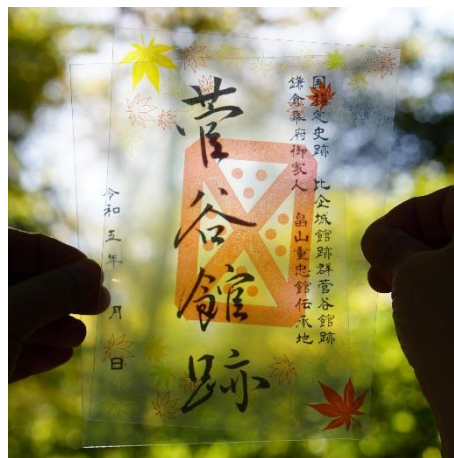 国指定史跡 比企城館跡群菅谷館跡
鎌倉幕府御家人 畠山重忠館伝承地
菅谷館跡
令和五年 月 日